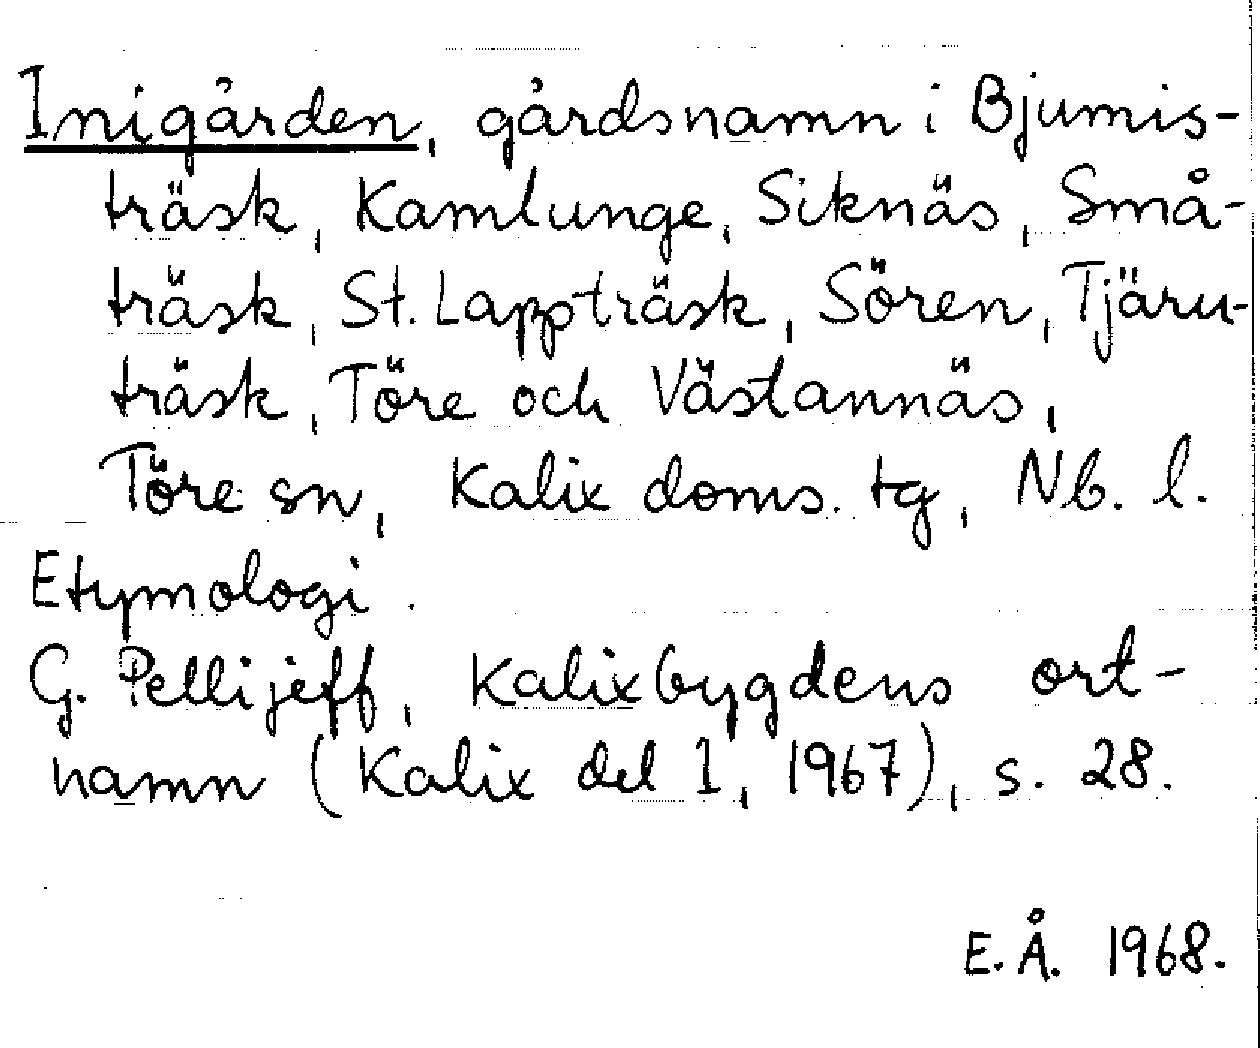 Inigården, gårdsnamn i Bjumis-
träsk, Kamlunge, Siknäs, Små-
träsk, St. Lappträsk, Sören, Tjäru-
träsk, Töre och Västannäs,
Töre sn, Kalix doms. tg, Nb. l.
Etymologi.
G. Pellijeff, Kalixbygdens ort-
namn (Kalix del 1, 1967), s. 28.
E.Å. 1968.